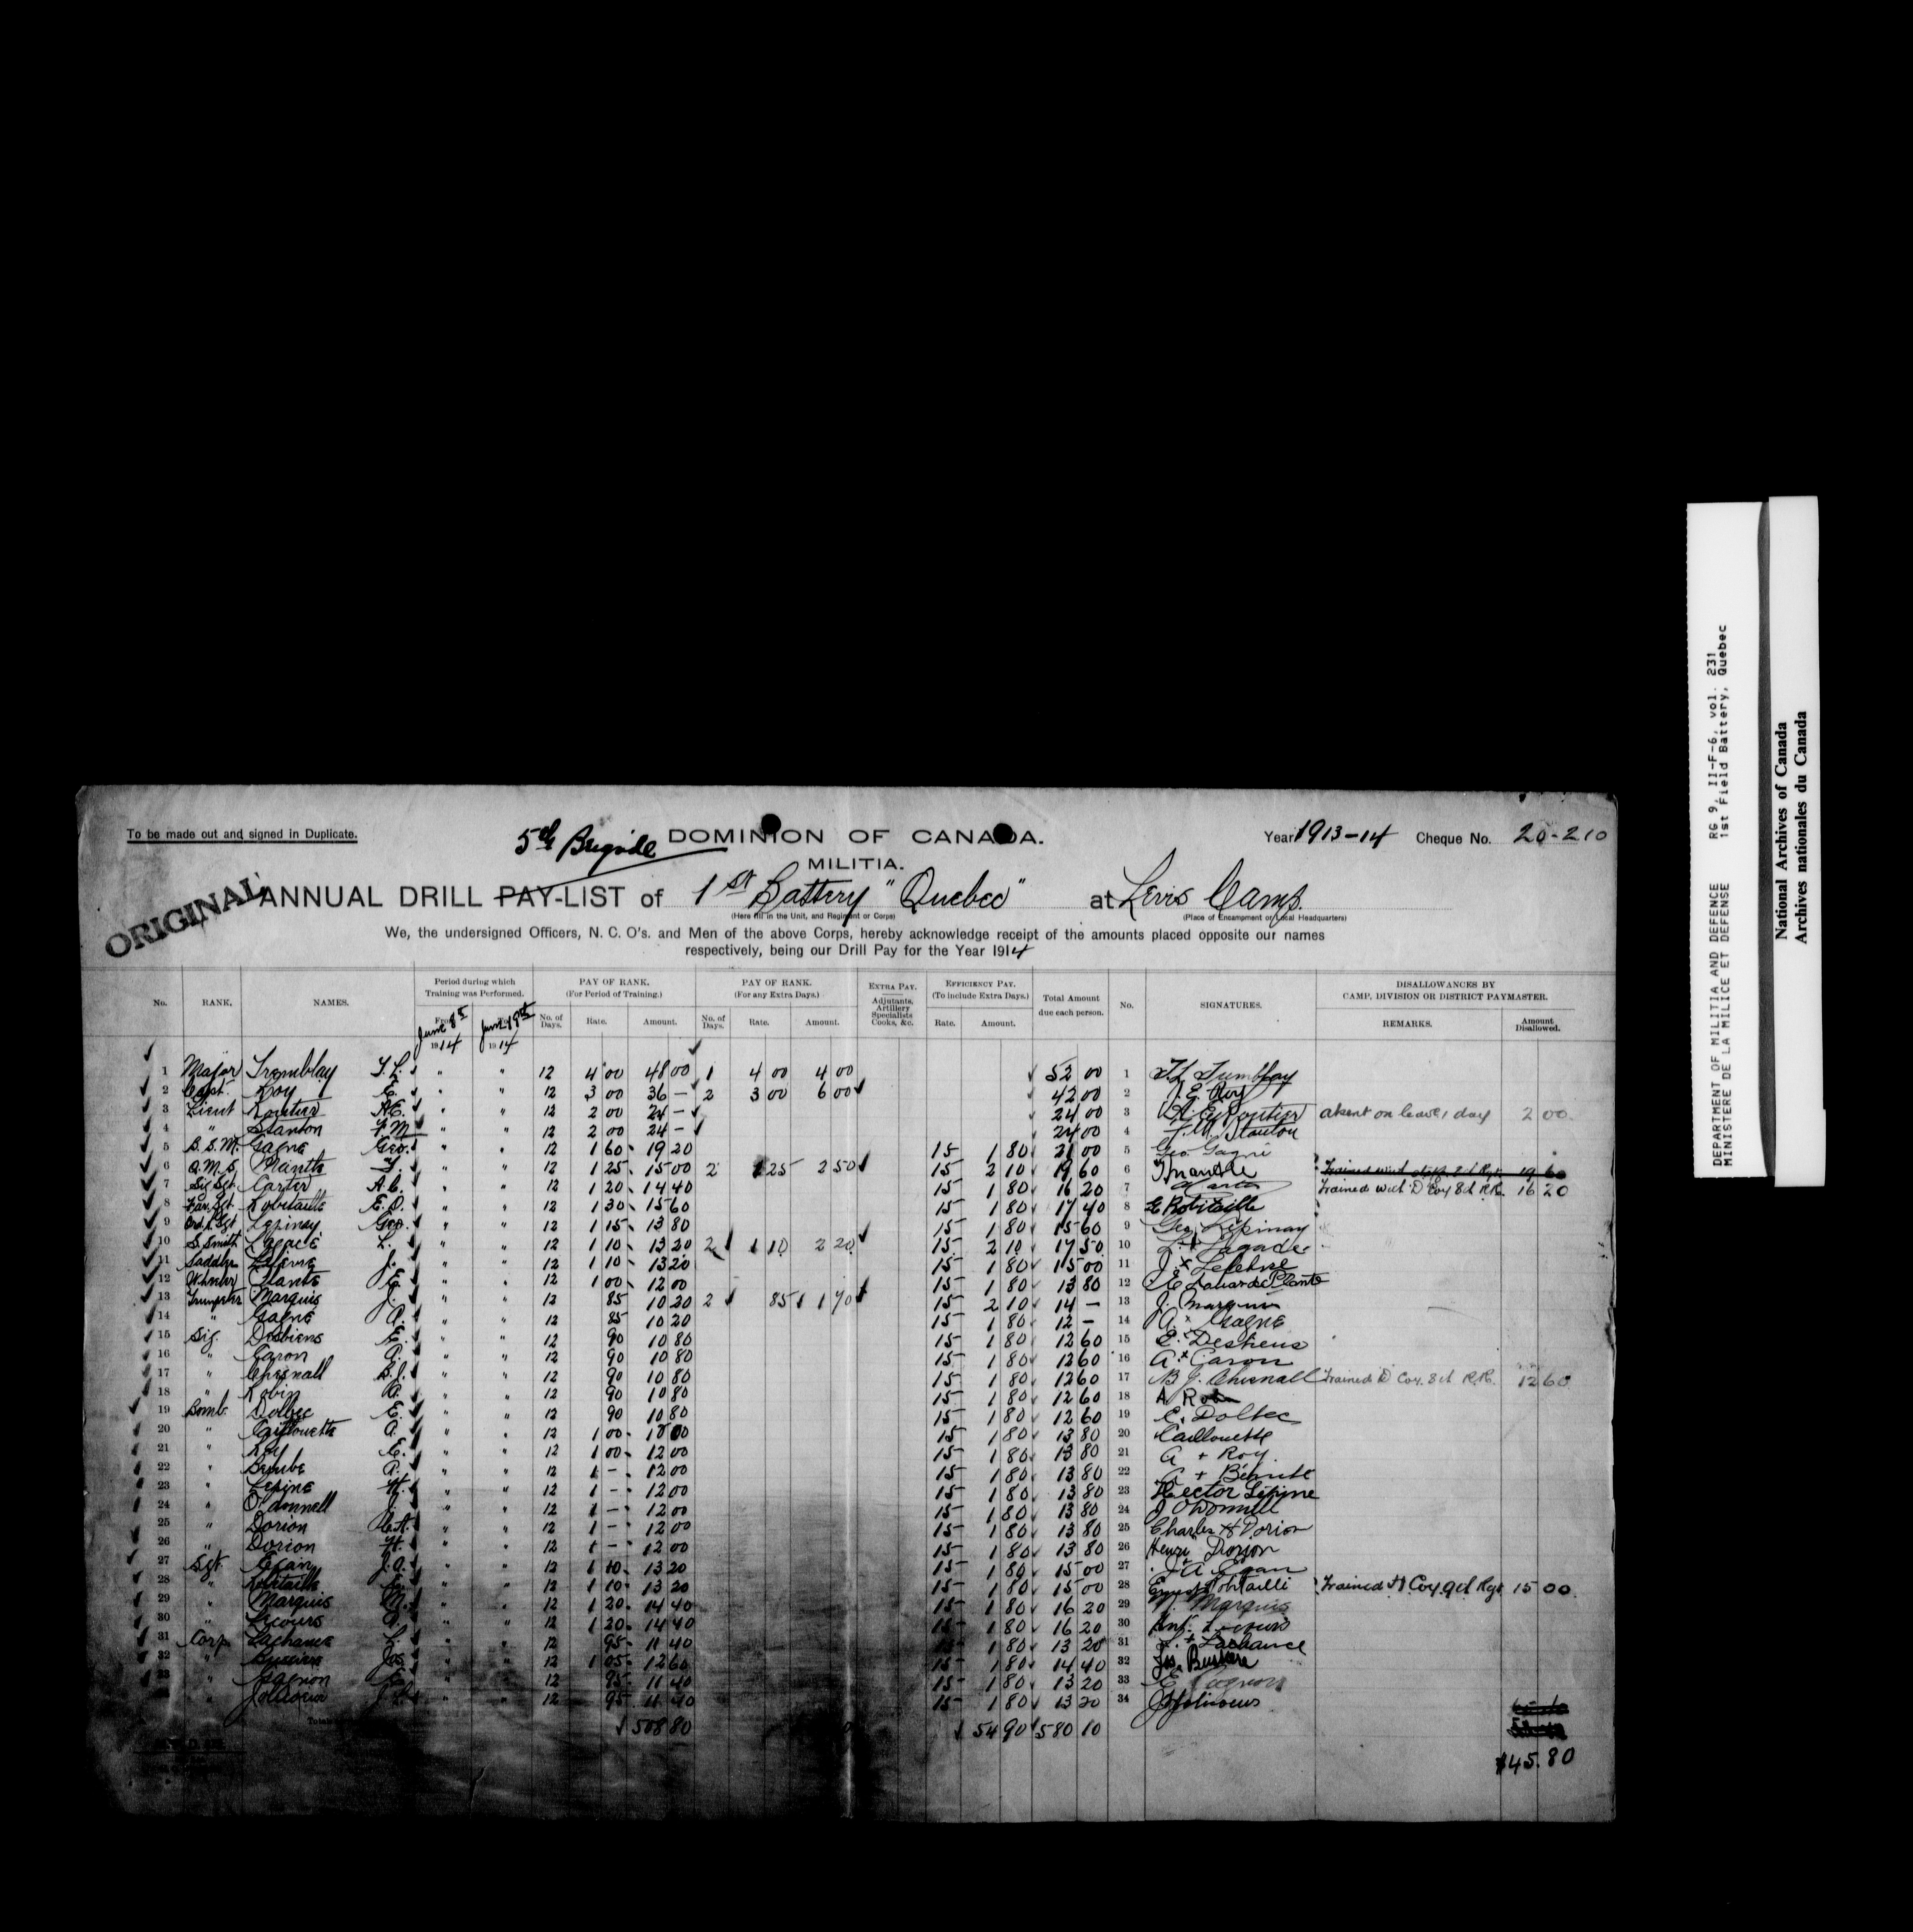 To be made out and signed in Duplicate.
5th Brigade DOMINION OF CANADA. Year 1913-14 Cheque No. 20-210
MILITIA.
ORIGINAL
ANNUAL DRILL PAY-LIST of 1st Battery "Quebec" at Levis Camp.
(Here fill in the Unit, and Regiment or Corps) (Place of Encampment or Local Headquarters)
We, the undersigned Officers, N. C. O's. and Men of the above Corps, hereby acknowledge receipt of the amounts placed opposite our names
respectively, being our Drill Pay for the Year 1914
No. RANK. NAMES. Period during which Training was Performed. PAY OF RANK. (For Period of Training.) PAY OF RANK. (For any Extra Days.) EXTRA PAY. Adjutants, Artillery Specialists Cooks, &c. EFFICIENCY PAY. (To include Extra Days.) Total Amount due each person. No. SIGNATURES. DISALLOWANCES BY CAMP, DIVISION OR DISTRICT PAYMASTER.
From June 8th 1914 June 19th 1914 No. of Days. Rate. Amount. No. of Days. Rate. Amount. Rate. Amount. REMARKS. Amount Disallowed.
1 Major Tremblay T.L. " " 12 4 00 48 00 1 4 00 4 00 52 00 1 T.L. Tremblay
2 Capt. Roy E. " " 12 3 00 36 - 2 3 00 6 00 42 00 2 E. Roy
3 Lieut Routier A.E. " " 12 2 00 24 - 24 00 3 A.E. Routier absent on leave 1 day 2 00
4 " Stanton F.M. " " 12 2 00 24 - 24 00 4 F.M. Stanton
5 B.S.M. Gagne Geo. " " 12 1 60 19 20 15 1 80 21 00 5 Geo Gagné
6 Q.M.S. " " 12 1 25 15 00 2 1 25 2 50 15 2 10 19 60 6 19 60
7 Sig Sgt Carter A.C. " " 12 1 20 14 40 15 1 80 16 20 7 Carter Trained with D Coy 8th R.R. 16 20
8 Far. Sgt Robitaille E.O. " " 12 1 30 15 60 15 1 80 17 40 8 E Robitaille
9 Lepinay Geo. " " 12 1 15 13 80 15 1 80 15 60 9 Geo. Lépinay
10 S. Smith Lagacé L. " " 12 1 10 13 20 2 1 10 2 20 15 2 10 17 50 10 L. + Lagacé
11 Saddler J. " " 12 1 10 13 20 15 1 80 15 00 11 J. x Lefebvre
12 Plante E. " " 12 1 00 12 00 15 1 80 13 80 12 Plante
13 Trumpeter Marquis J. " " 12 85 10 20 2 85 1 70 15 2 10 14 - 13 J. Marquis
14 " Gagne A. " " 12 85 10 20 15 1 80 12 - 14 A. x Gagne
15 Sig. Desbiens E. " " 12 90 10 80 15 1 80 12 60 15 E. Desbiens
16 " Caron A. " " 12 90 10 80 15 1 80 12 60 16 A. x Caron
17 " Chisnall B.J. " " 12 90 10 80 15 1 80 12 60 17 B.J. Chisnall Trained D Coy. 8th R.R. 12 60
18 " Robin A. " " 12 90 10 80 15 1 80 12 60 18 A Robin
19 Bomb. Dolbec E. " " 12 90 10 80 15 1 80 12 60 19 E. Dolbec
20 " Caillouette A. " " 12 1 00 12 00 15 1 80 13 80 20 Caillouette
21 " Roy E. " " 12 1 00 12 00 15 1 80 13 80 21 A + Roy
22 " Berube A. " " 12 1 - 12 00 15 1 80 13 80 22 A + Bérubé
23 " Lepine H. " " 12 1 - 12 00 15 1 80 13 80 23 Hector Lépine
24 " O'donnell J. " " 12 1 - 12 00 15 1 80 13 80 24 J O'Donnell
25 " Dorion C.H. " " 12 1 - 12 00 15 1 80 13 80 25 Charles H Dorion
26 " Dorion H. " " 12 1 - 12 00 15 1 80 13 80 26 Henri Dorion
27 Sgt. Egan J.A. " " 12 1 10 13 20 15 1 80 15 00 27 J A Egan
28 " Robitaille E. " " 12 1 10 13 20 15 1 80 15 00 28 Ernest Robitaille Trained H Coy 9th Rgt 15 00
29 " Marquis M. " " 12 1 20 14 40 15 1 80 16 20 29 M. Marquis
30 " Lecours A. " " 12 1 20 14 40 15 1 80 16 20 30 Ant. Lecours
31 Corp Lachance L. " " 12 95 11 40 15 1 80 13 20 31 L. + Lachance
32 " Jos. " " 12 1 05 12 60 15 1 80 14 40 32 Jos.
33 " Gagnon E. " " 12 95 11 40 15 1 80 13 20 33 E Gagnon
" Jolicoeur " " 12 95 11 40 15 1 80 13 20 34 Jolicoeur
Totals 508 80 54 90 580 10
$45.80
DEPARTMENT OF MILITIA AND DEFENCE RG 9, II-F-6, vol. 231
MINISTERE DE LA MILICE ET DEFENSE 1st Field Battery, Quebec
National Archives of Canada
Archives nationales du Canada